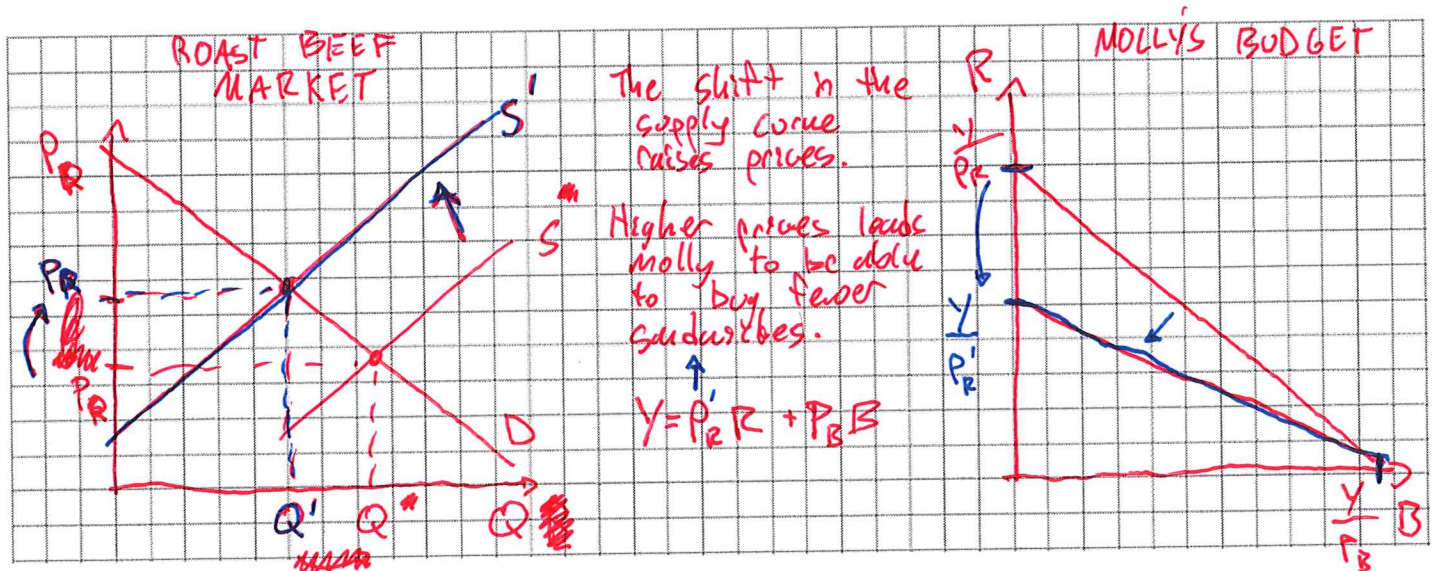 ROAST BEEF
MARKET
P_R
S'
S
P_R'
P_R
D
Q'
Q
Q
The shift in the
supply curve
raises prices.
Higher prices leads
Molly to be able
to buy fewer
sandwiches.
Y = P_R' R + P_B B
MOLLY'S BUDGET
R
Y/P_R
Y/P_R'
Y/P_B
B